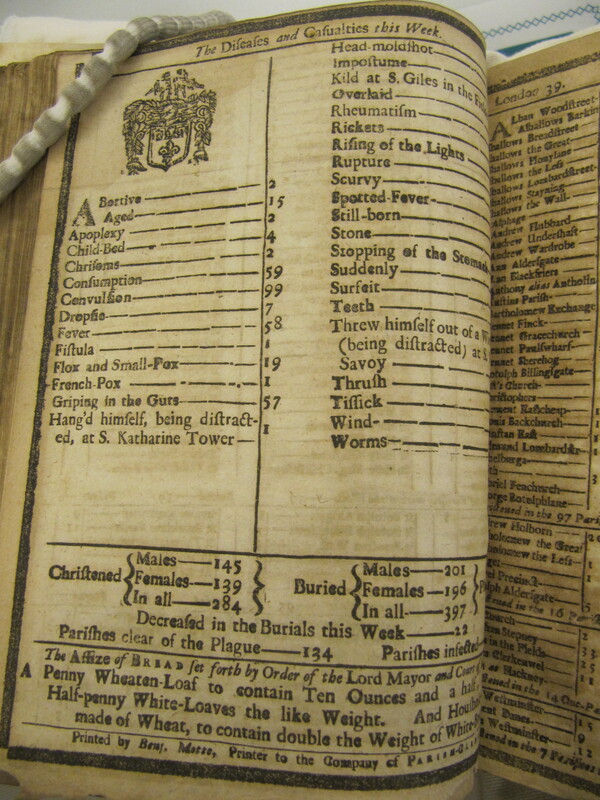 The Diseaſes and Caſualties this Week.
Abortive 2
Aged 15
Apoplexy 2
Child-Bed 4
Chriſoms 2
Conſumption 59
Convulſion 99
Dropſie 7
Fever 58
Fiſtula 1
Flox and Small-Pox 19
French-Pox 1
Griping in the Guts 57
Hang'd himſelf, being diſtract-
ed, at S. Katharine Tower 1
Head-moldſhot
Impoſtume
Kild at S. Giles in the
Overlaid
Rheumatiſm
Rickets
Riſing of the Lights
Rupture
Scurvy
Spotted-Fever
Still-born
Stone
Stopping of the Stomach
Suddenly
Surfeit
Teeth
Threw himſelf out of a
(being diſtracted) at S.
Savoy
Thruſh
Tiſſick
Wind
Worms
Chriſtened
Males 145
Females 139
In all 284
Buried
Males 201
Females 196
In all 397
Decreaſed in the Burials this Week 22
Pariſhes clear of the Plague 134 Pariſhes infected
The Aſſize of BREAD ſet forth by Order of the Lord Mayor and Court
A Penny Wheaten-Loaf to contain Ten Ounces and a half
Half-penny White-Loaves the like Weight. And
made of Wheat, to contain double the Weight of White
Printed by Benj. Motte, Printer to the Company of
London 39.
Alban Woodſtreet
Alhallows Barkin
Breadſtreet
the Great
Honylane
the Leſs
Lombardſtreet
Stayning
the Wall
Alphage
Andrew Hubbard
Andrew Underſhaft
Andrew Wardrobe
Alderſgate
Blackfriers
alias Antholin
Pariſh
Bartholomew Exchange
Finck
Gracechurch
Paulſwharf
Sherehog
Botolph Billingſgate
Church
Eaſtcheap
Backchurch
Eaſt
Lombardſtr
Fenchurch
in the 97
Holborn
the Great
the Leſs
Precinct
Alderſgate
in the 16
Stepney
in the Fields
Clerkenwel
Hackney
Weſtminſter
Danes
Weſtminſter
in the 7